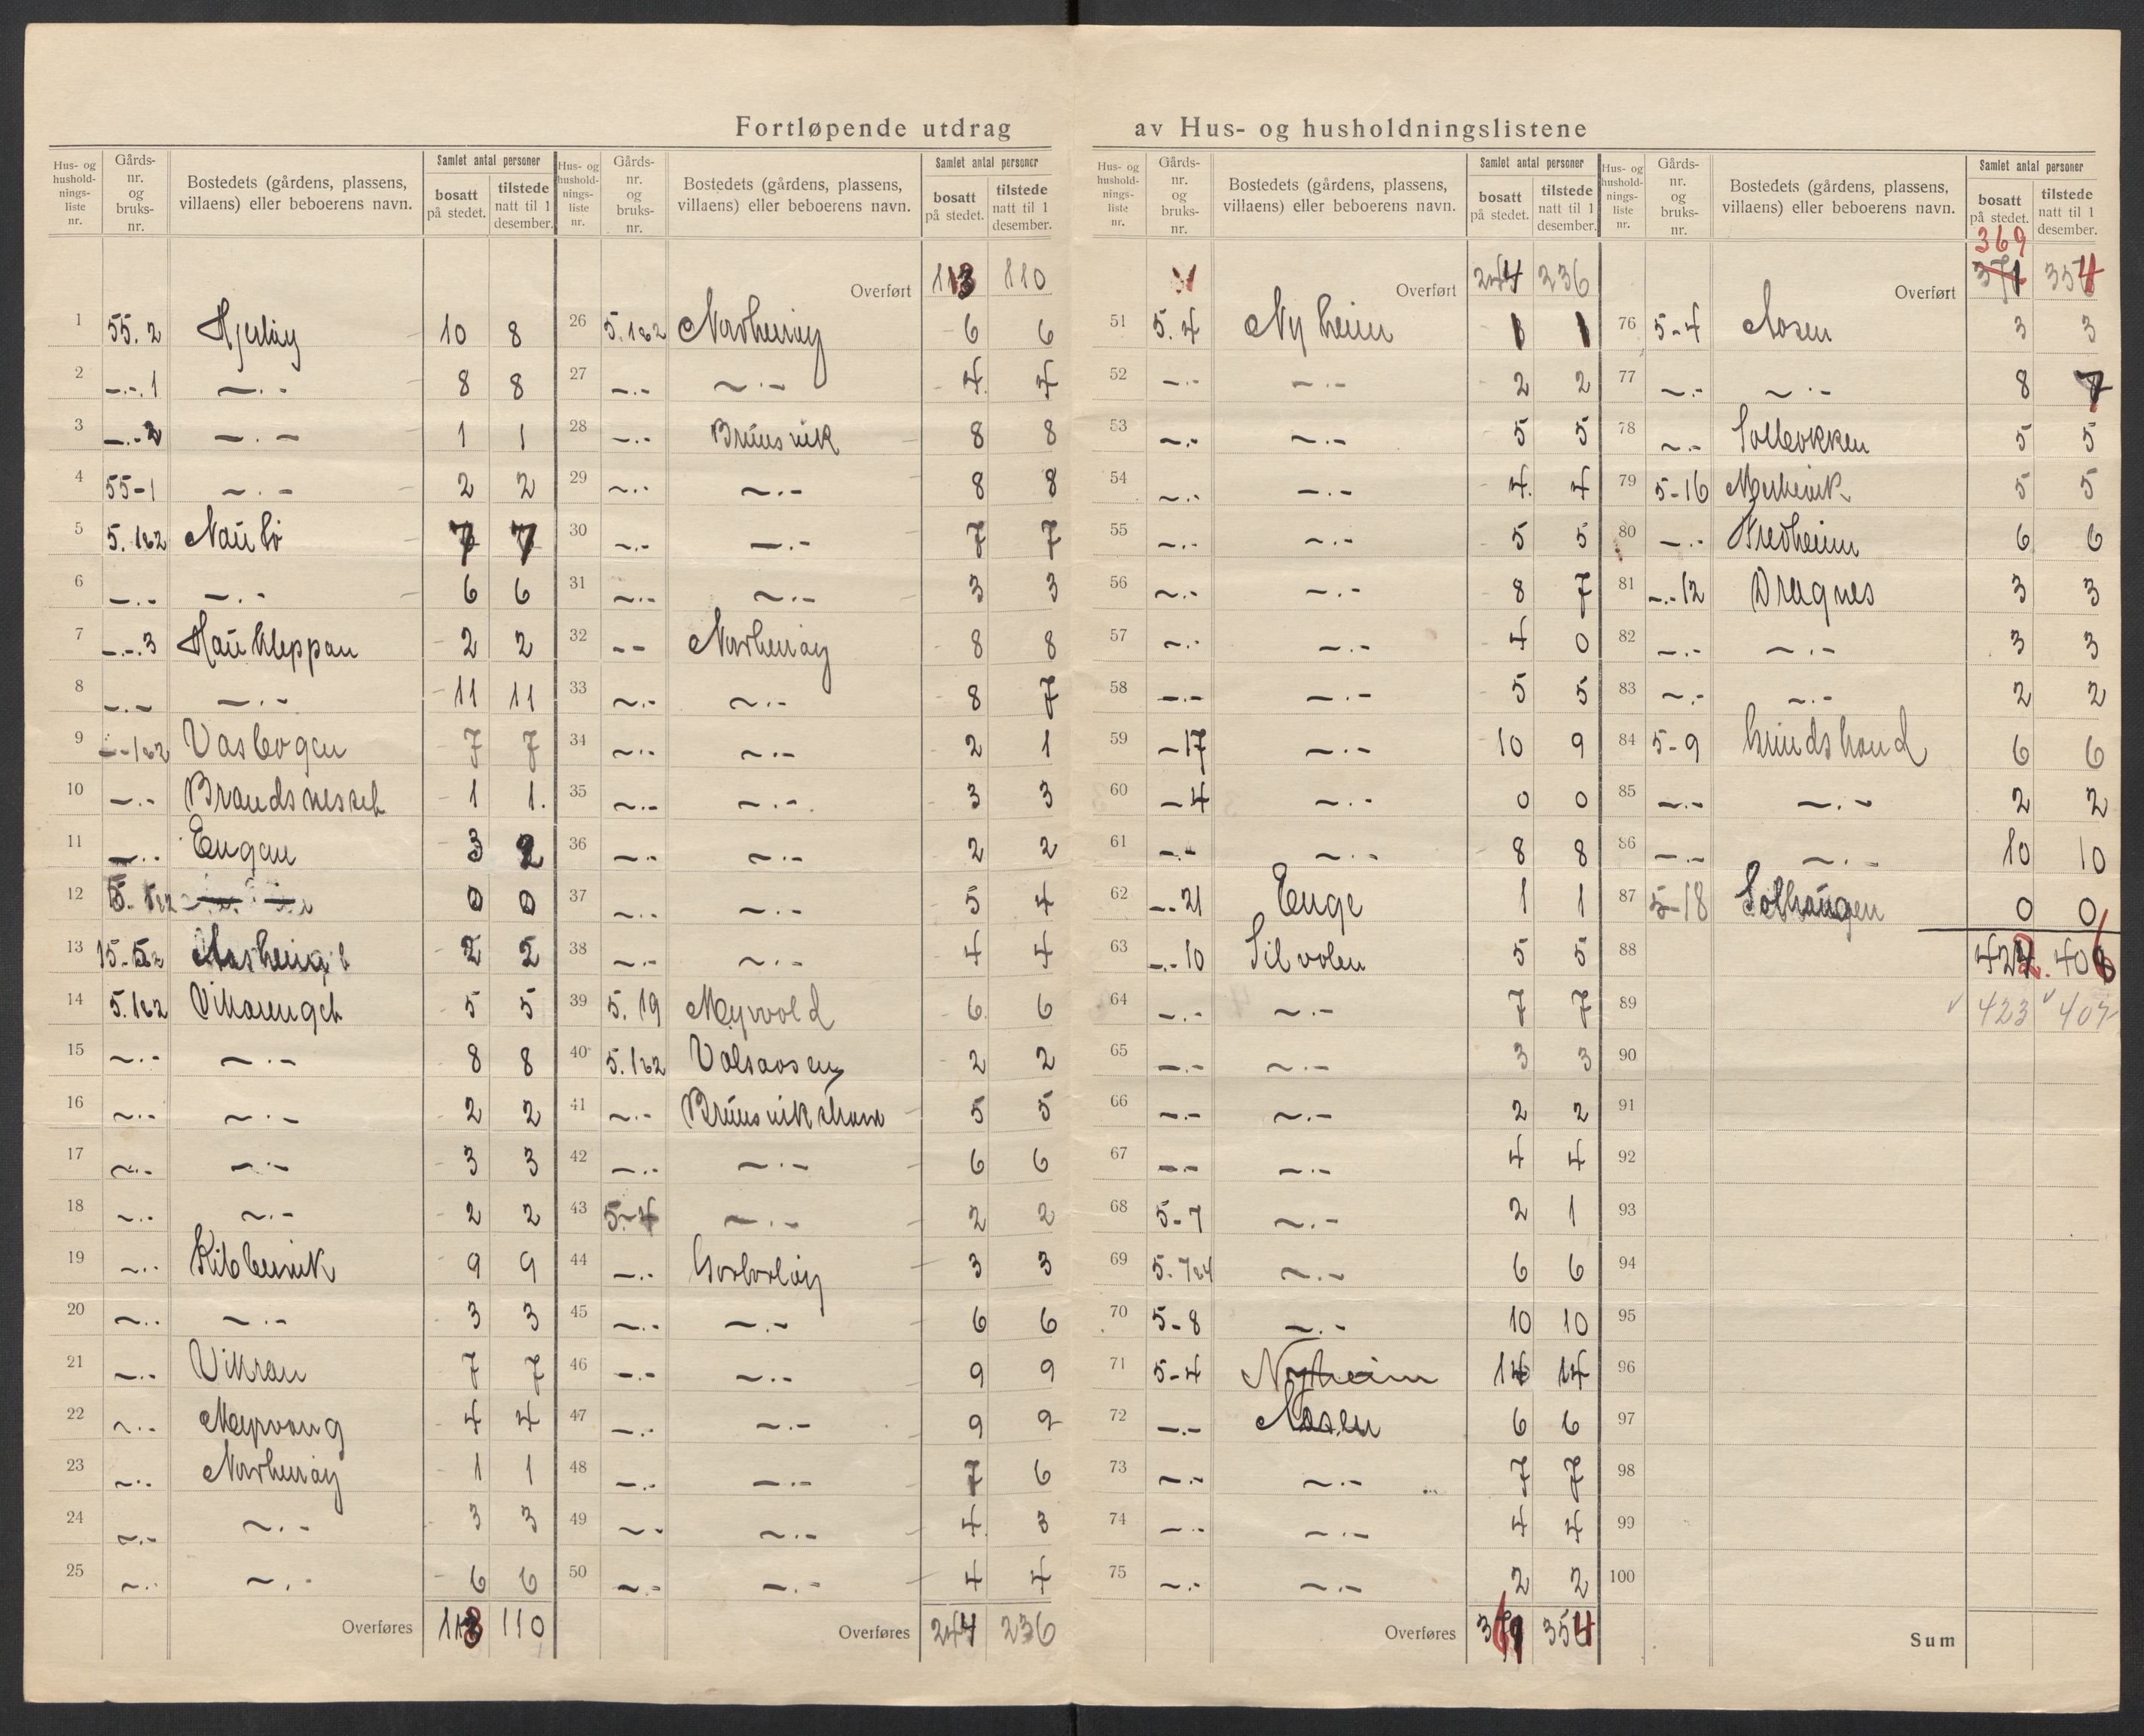 Fortløpende utdrag av Hus- og husholdningslistene
Hus- og husholdnings-liste nr. | Gårds-nr. og bruks-nr. | Bostedets (gårdens, plassens, villaens) eller beboerens navn. | Samlet antal personer bosatt på stedet. | tilstede natt til 1 desember.
1 55.2 10 8
2 —.-.1 —.- 8 8
3 —.-2 —.- 1 1
4 55-1 —.- 2 2
5 5.1&2 7 7
6 —.- —.- 6 6
7 —.-.3 Haukleppan 2 2
8 —.- —.- 11 11
9 —.-1&2 Vasbogen 7 7
10 —.- Brandsneset 1 1.
11 —.- Engan 3 2
12 5. 1&2 0 0
13 2 2
14 5.1&2 Vikarenget 5 5
15 —.- —.- 8 8
16 —.- —.- 2 2
17 —.- —.- 3 3
18 —.- —.- 2 2
19 —.- Kibbervik 9 9
20 —.- —.- 3 3
21 —.- Vikran 7 7
22 —.- 4 4
23 —.- Norheräy 1 1
24 —.- —.- 3 3
25 —.- —.- 6 6
Overføres 113 110
Hus- og husholdnings-liste nr. | Gårds-nr. og bruks-nr. | Bostedets (gårdens, plassens, villaens) eller beboerens navn. | Samlet antal personer bosatt på stedet. | tilstede natt til 1 desember.
Overført 113 110
26 5.1&2 6 6
27 —.- —.- 4 4
28 —.- Bruusvik 8 8
29 —.- —.- 8 8
30 —.- —.- 7 7
31 —.- —.- 3 3
32 -- 8 8
33 —.- —.- 8 7
34 —.- —.- 2 1
35 —.- —.- 3 3
36 —.- —.- 2 2
37 —.- —.- 5 4
38 —.- —.- 4 4
39 5.19 Myrvold 6 6
40 5.1&2 Valsaosen 2 2
41 —.- 5 5
42 —.- —.- 6 6
43 5-4 —.- 2 2
44 —.- 3 3
45 —.- —.- 6 6
46 —.- —.- 9 9
47 —.- —.- 9 9
48 —.- —.- 7 6
49 —.- —.- 4 3
50 —.- —.- 4 4
Overføres 244 236
Hus- og husholdnings-liste nr. | Gårds-nr. og bruks-nr. | Bostedets (gårdens, plassens, villaens) eller beboerens navn. | Samlet antal personer bosatt på stedet. | tilstede natt til 1 desember.
Overført 244 236
51 5.4 Nyheim 1 1
52 —.- —.- 2 2
53 —.- —.- 5 5
54 —.- —.- 4 4
55 —.- —.- 5 5
56 —.- —.- 8 7
57 —.- —.- 4 0
58 —.- —.- 5 5
59 —17 —.- 10 9
60 —4 —.- 0 0
61 —.- —.- 8 8
62 —.-21 Enge 1 1
63 —.-10 Silvolen 5 5
64 —.- —.- 7 7
65 —.- —.- 3 3
66 —.- —.- 2 2
67 —.- —.- 4 4
68 5-7 —.- 2 1
69 5.7&4 —.- 6 6
70 5-8 —.- 10 10
71 5-4 Nyheim 14 14
72 —.- Aasen 6 6
73 —.- —.- 7 7
74 —.- —.- 4 4
75 —.- —.- 2 2
Overføres 369 354
Hus- og husholdnings-liste nr. | Gårds-nr. og bruks-nr. | Bostedets (gårdens, plassens, villaens) eller beboerens navn. | Samlet antal personer bosatt på stedet. | tilstede natt til 1 desember.
369
Overført 371 354
76 5-4 Aosen 3 3
77 —.- —.- 8 7
78 —.- Solbakken 5 5
79 5-16 5 5
80 —.- Fredheim 6 6
81 —.-12 Dragnes 3 3
82 —.- —.- 3 3
83 —.- —.- 2 2
84 5-9 Grindstrand 6 6
85 —.- —.- 2 2
86 —.- —.- 10 10
87 5-18 Solhaugen 0 0
88 422. 406
89 423 407
90
91
92
93
94
95
96
97
98
99
100
Sum